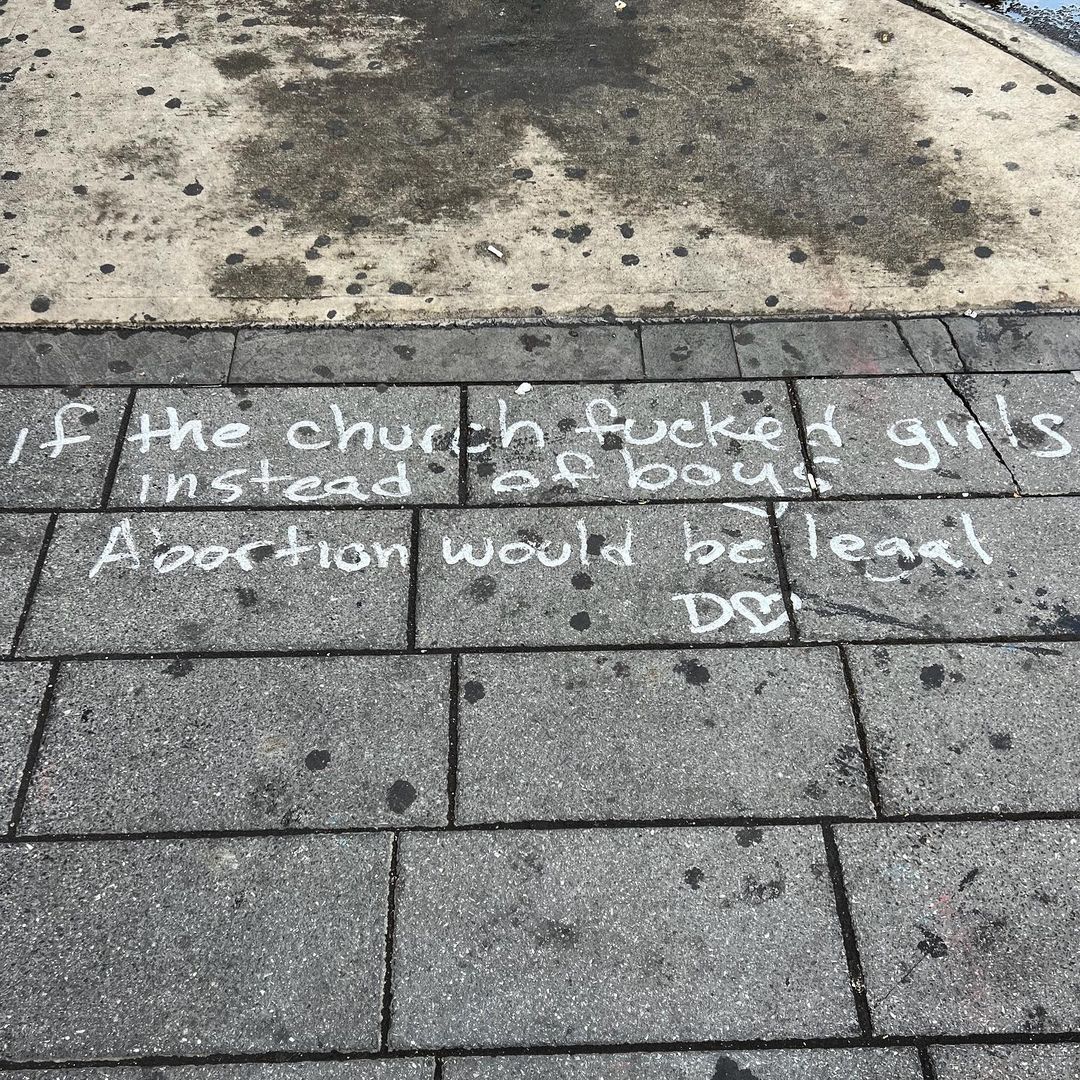 if the church fucked girls
instead of boys
Abortion would be legal
D♡